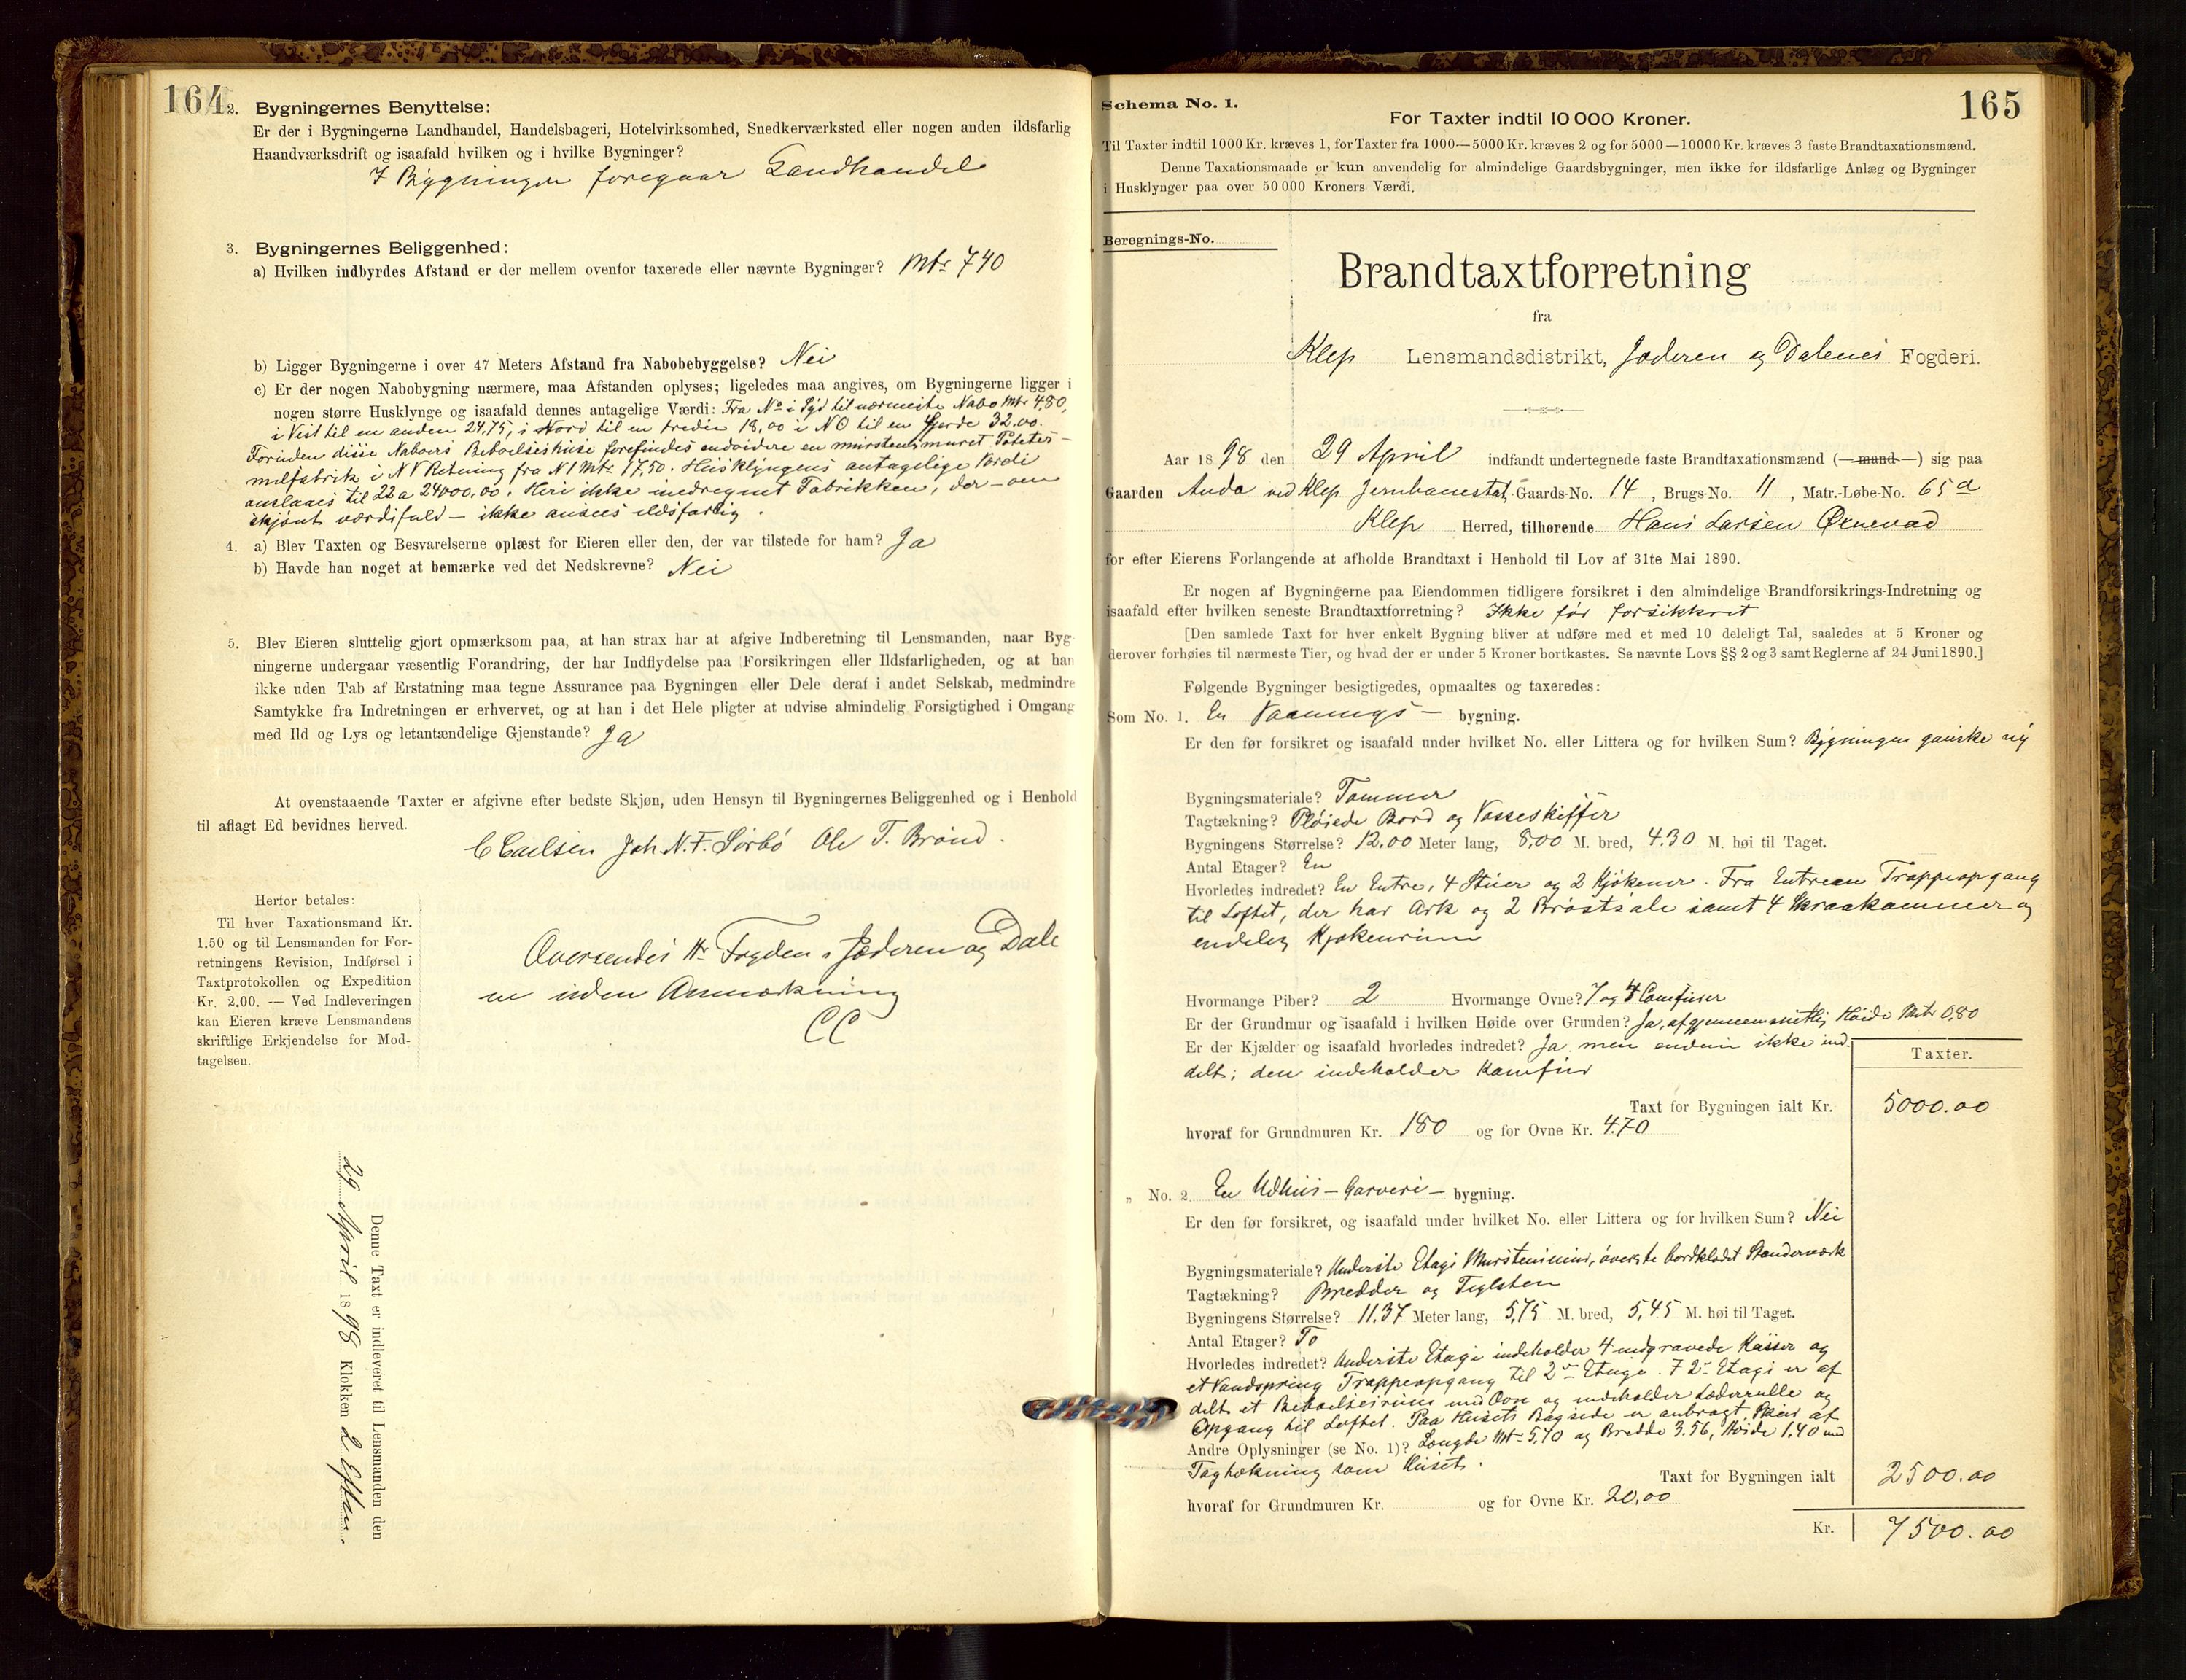 164
2. Bygningernes Benyttelse:
Er der i Bygningerne Landhandel, Handelsbageri, Hotelvirksomhed, Snedkerværksted eller nogen anden ildsfarlig
Haandværksdrift og isaafald hvilken og i hvilke Bygninger?
I Bygningen foregaar Landhandel
3. Bygningernes Beliggenhed:
a) Hvilken indbyrdes Afstand er der mellem ovenfor taxerede eller nævnte Bygninger? Mtr 7.40
b) Ligger Bygningerne i over 47 Meters Afstand fra Nabobebyggelse? Nei
c) Er der nogen Nabobygning nærmere, maa Afstanden oplyses; ligeledes maa angives, om Bygningerne ligger i
nogen større Husklynge og isaafald dennes antagelige Værdi: Fra No 1 i Syd til nærmeste Nabo Mtr 4,80,
i Vest til en anden 24,75, i Nord til en tredie 18,00 i NO til en fjerde 32.00.
Foruden disse Naboers Beboelseshuse forefindes endvidere en murstensmuret Potetes-
melfabrik i NV Retning fra N 1 Mtr 17,50. Husklyngens antagelige Værdi
anslaaes til 22 a 24000,00. Heri ikke medregnet Fabrikken, der – om
skjønt værdifuld – ikke ansees ildsfarlig.
4. a) Blev Taxten og Besvarelserne oplæst for Eieren eller den, der var tilstede for ham? Ja
b) Havde han noget at bemærke ved det Nedskrevne? Nei
5. Blev Eieren sluttelig gjort opmærksom paa, at han strax har at afgive Indberetning til Lensmanden, naar Byg
ningerne undergaar væsentlig Forandring, der har Indflydelse paa Forsikringen eller Ildsfarligheden, og at han
ikke uden Tab af Erstatning maa tegne Assurance paa Bygningen eller Dele deraf i andet Selskab, medmindre
Samtykke fra Indretningen er erhvervet, og at han i det Hele pligter at udvise almindelig Forsigtighed i Omgang
med Ild og Lys og letantændelige Gjenstande? Ja
At ovenstaaende Taxter er afgivne efter bedste Skjøn, uden Hensyn til Bygningernes Beliggenhed og i Henhold
til aflagt Ed bevidnes herved.
Joh. N. F. Sörbö Ole T. Bröud.
Herfor betales:
Til hver Taxationsmand Kr.
1.50 og til Lensmanden for For-
retningens Revision, Indførsel i
Taxtprotokollen og Expedition
Kr. 2.00. — Ved Indleveringen
kan Eieren kræve Lensmandens
skriftlige Erkjendelse for Mod-
tagelsen.
Oversendes Hr Fogden i Jæderen og Dale
ne uden Anmærkning
CC
Denne Taxt er indleveret til Lensmanden den
29 April 1898 Klokken 2 Efterm.
Schema No. 1.
165
For Taxter indtil 10 000 Kroner.
Til Taxter indtil 1000 Kr. kræves 1, for Taxter fra 1000—5000 Kr. kræves 2 og for 5000—10000 Kr. kræves 3 faste Brandtaxationsmænd.
Denne Taxationsmaade er kun anvendelig for almindelige Gaardsbygninger, men ikke for ildsfarlige Anlæg og Bygninger
i Husklynger paa over 50 000 Kroners Værdi.
Beregnings-No.
Brandtaxtforretning
fra
Klep Lensmandsdistrikt, Jæderen og Dalenes Fogderi.
Aar 1898 den 29 April indfandt undertegnede faste Brandtaxationsmænd (—mand—) sig paa
Gaarden Anda ved Klep Jernbanestat, Gaards-No. 14, Brugs-No. 11, Matr.-Løbe-No. 65 d
Klep Herred, tilhørende Hans Larsen Øxnevad
for efter Eierens Forlangende at afholde Brandtaxt i Henhold til Lov af 31te Mai 1890.
Er nogen af Bygningerne paa Eiendommen tidligere forsikret i den almindelige Brandforsikrings-Indretning og
isaafald efter hvilken seneste Brandtaxtforretning? Ikke før forsikkret
[Den samlede Taxt for hver enkelt Bygning bliver at udføre med et med 10 deleligt Tal, saaledes at 5 Kroner og
derover forhøies til nærmeste Tier, og hvad der er under 5 Kroner bortkastes. Se nævnte Lovs §§ 2 og 3 samt Reglerne af 24 Juni 1890.]
Følgende Bygninger besigtigedes, opmaaltes og taxeredes:
Som No. 1. En Vaanings – bygning.
Er den før forsikret og isaafald under hvilket No. eller Littera og for hvilken Sum? Bygningen ganske ny
Bygningsmateriale? Tømmer
Tagtækning? Pløiede Bord og Vosseskiffer
Bygningens Størrelse? 12.00 Meter lang, 8,00 M. bred, 4.30 M. høi til Taget.
Antal Etager? En
Hvorledes indredet? En Entre, 4 Stuer og 2 Kjøkener. Fra Entreen Trappeopgang
til Loftet, der har Ark og 2 Brøstsale samt 4 Skraakammer og
endelig Kjøkenrum
Hvormange Piber? 2 Hvormange Ovne? 7 og 4 Comfurer
Er der Grundmur og isaafald i hvilken Høide over Grunden? Ja, af gjennemsnitlig Høide Mtr 0,80
Er der Kjælder og isaafald hvorledes indredet? Ja men endnu ikke ind-
delt; den indeholder Komfur
Taxter.
Taxt for Bygningen ialt Kr. 5000.00
hvoraf for Grundmuren Kr. 180 og for Ovne Kr. 470
„ No. 2. En Udhus – Garveri – bygning.
Er den før forsikret, og isaafald under hvilket No. eller Littera og for hvilken Sum? Nei
Bygningsmateriale? Underste Etage Murstensmur, øverste bordklædt Standerværk
Tagtækning? Bredder og Teglsten
Bygningens Størrelse? 11,37 Meter lang, 5,75 M. bred, 5,45 M. høi til Taget.
Antal Etager? To
Hvorledes indredet? Underste Etage indeholder 4 nedgravede Kasser og
et Vandspring Trappeopgang til 2den Etage. I 2den Etage er af
delt et Beboelsesrum med Ovn og indeholder Læderrulle og
Opgang til Loftet. Paa Husets Bagside er anbragt Skur af
Andre Oplysninger (se No. 1)? Længde Mtr 5,70 og Bredde 3.56, Høide 1,40 med
Tagtækning som Huset.
Taxt for Bygningen ialt 2500.00
hvoraf for Grundmuren Kr. og for Ovne Kr. 20,00
Kr. 7500.00